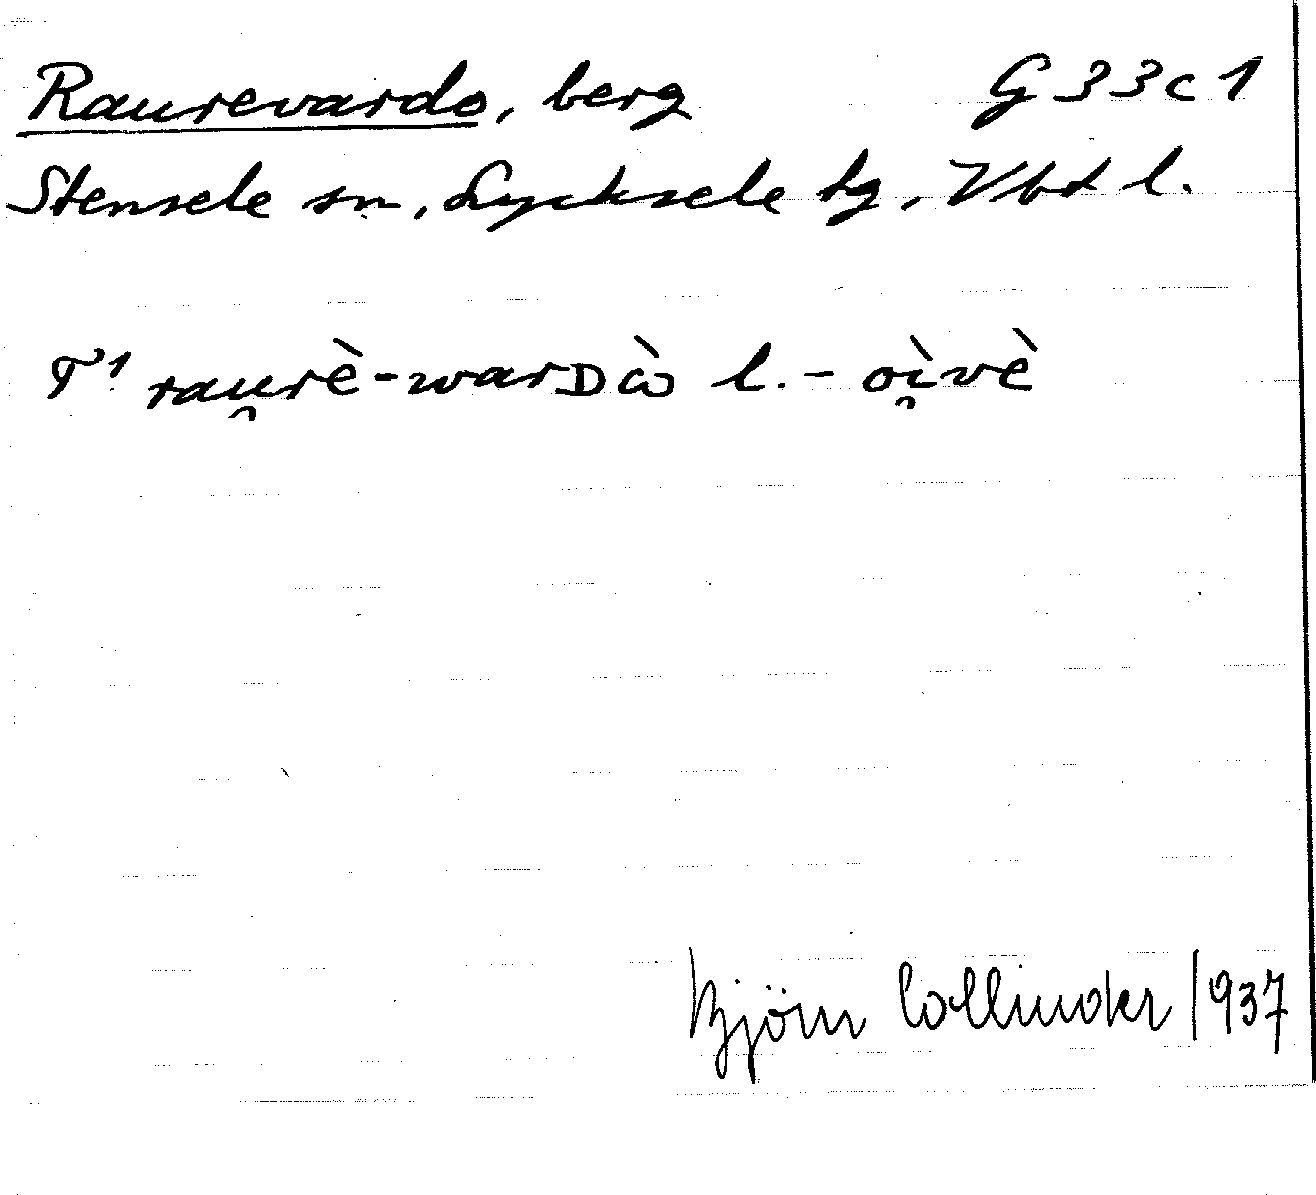 Raurevardo, berg G 33 c 1
Stensele sn, Lycksele tg, Vbt l.
T¹ rau̯rè-warᴅὼ l. - oi̯vè
Björn Collinder 1937